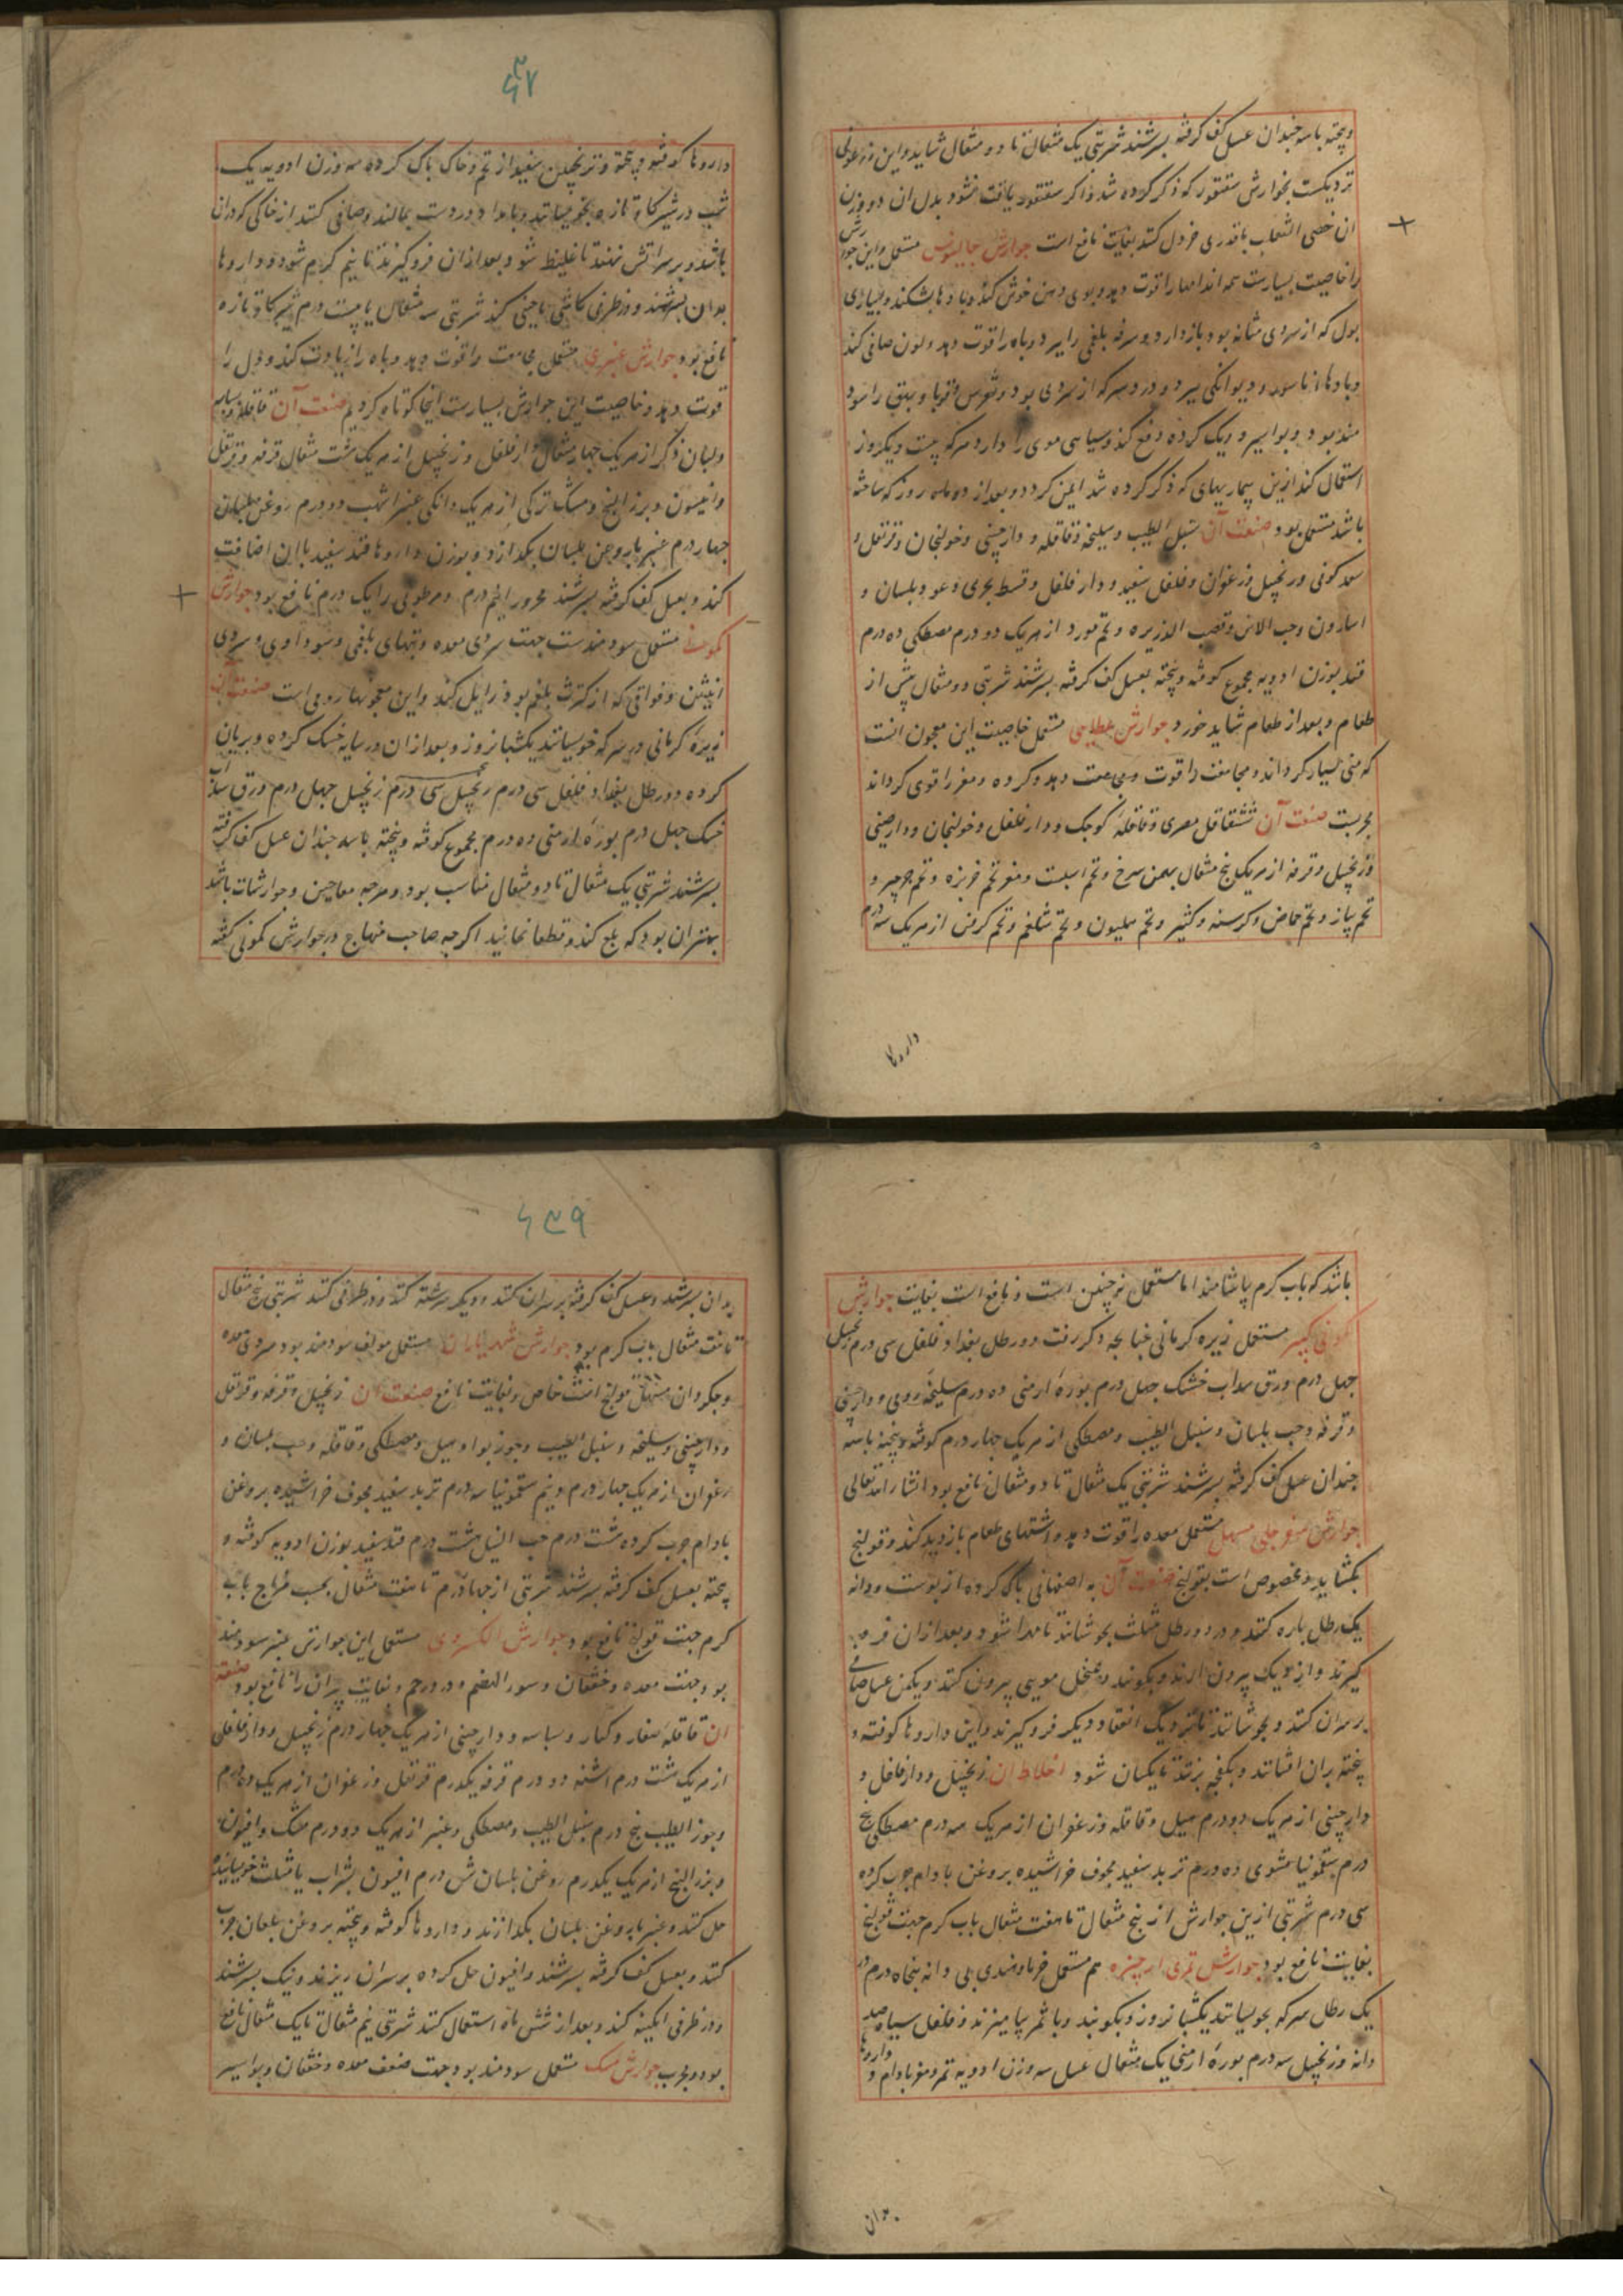 وپخته باسه چندان عسل کف گرفته بسرشند شربتی یک مثقال تا دو مثقال شاید واین
نزدیکست بجوارش سقنقور که ذکر کرده شد واکر سقنقور یافت نشود بدل ان دو وزن
ان خصی الثعلب باقدری خردل کنند بغایت نافع است جوارش جالینوس مستعمل واین جوارش
را خاصیت بسیارست همه اندامها را قوت دهد وبوی دهن خوش کند وبادها بشکند وبسیاری
بول که از سردی مثانه بود بازدارد وسرفه بلغمی را ببرد وباه را قوت دهد ولون صافی کند
وبادهای ناسور ودیوانکی ببرد ودرد سر که از سردی بود ونقرس وقوبا وبهق را سود
مند بود وبواسیر وریک کرده دفع کند وسیاهی موی را دارد هرکه بیست ویکروز
استعمال کند ازین بیماریهای که ذکر کرده شد ایمن کردد وبعد از دو ماه روز که ساخته
باشد مستعمل بود صنعت آن سنبل الطیب وسلیخه وقاقله ودارچینی وخولنجان وقرنفل و
سعد کوفی وزنجبیل وزعفران وفلفل سفید ودار فلفل وقسط بحری وعود بلسان و
اسارون وحب الاس وقصب الذریره وتخم مورد از هریک دو درم مصطکی ده درم
قند بوزن ادویه مجموع کوفته وپخته بعسل کف گرفته بسرشند شربتی دو مثقال پیش از
طعام وبعد از طعام شاید خورد جوارش عطایی مستعمل خاصیت این معجون انست
که منی بسیار کرداند ومجامعت را قوت دهد وکرده ومغز را قوی کرداند
مجربست صنعت آن شقاقل مصری وقاقله کوچک ودارفلفل وخولنجان ودارچینی
وزنجبیل وقرفه از هریک پنج مثقال بهمن سرخ وتخم اسپست ومغز تخم خربزه وتخم جرجیر و
تخم پیاز وتخم حماض وکرسنه وکثیر وتخم هلیون وتخم شلغم وتخم کرفس از هریک سه درم
داروها
داروها کوفته وپخته وترنجبین سفید از تخم وخاک پاک کرده سه وزن ادویه یک
شب در شیر کاو تازه بخیسانند وبامداد بدست بمالند وصافی کنند از خاکی که در ان
باشد وبر سر آتش نهند تا غلیظ شود وبعد از آن فرو گیرند تا نیم گرم شود وداروها
بدان بسرشند ودر ظرفی کاشی یا چینی کنند شربتی سه مثقال با بیست درم شیر کاو تازه
نافع بود جوارش عنبری مستعمل مجامعت را قوت دهد وباه را زیادت کند ودل را
قوت دهد وخاصیت این جوارش بسیارست اینجا کوتاه کردیم صنعت آن قاقله وبسباسه
ولبان ذکر از هریک چهار مثقال دارفلفل وزنجبیل از هریک هشت مثقال قرفه وقرنفل
وانیسون وبزر البنج ومشک ترکی از هریک دانکی عنبر اشهب دو درم روغن بلسان
چهار درم عنبر با روغن بلسان بکدازد وبوزن داروها قند سفید باان اضافت
کند وبعسل کف گرفته بسرشند محرور را نیم درم ومرطوبی را یک درم نافع بود جوارش
کمونی مستعمل سودمندست جهت سردی معده وتبهای بلغمی وسوداوی وسردی
انثیین وفواقی که از کثرت بلغم بود زایل کند واین معجونها رومی است صنعت آن
زیره کرمانی در سرکه خیسانند یکشبانروز وبعد از ان در سایه خشک کرده وبریان
کرده دو رطل بغداد فلفل سی درم زنجبیل چهل درم ورق سداب
خشک چهل درم بوره ارمنی ده درم مجموع کوفته وپخته باسه چندان عسل کف گرفته
بسرشند شربتی یک مثقال تا دو مثقال مناسب بود وهرچه معاجین وجوارشات باشد
بهتر ان بود که بلع کند وقطعا نخایند اکرچه صاحب منهاج در جوارش کمونی گفته
باشد که باب گرم بیاشامند اما مستعمل نه چنین است ونافع است بغایت جوارش
کمونی کبیر مستعمل زیره کرمانی چنانچه ذکر رفت دو رطل بغداد فلفل سی درم زنجبیل
چهل درم ورق سداب خشک چهل درم بوره ارمنی ده درم سلیخه ودارچینی
وقرفه وحب بلسان وسنبل الطیب ومصطکی از هریک چهار درم کوفته وپخته باسه
چندان عسل کف گرفته بسرشند شربتی یک مثقال تا دو مثقال نافع بود انشاءالله تعالی
جوارش سفرجلی مسهل مستعمل معده را قوت دهد واشتهای طعام بازدید کند وقولنج
بکشاید ومخصوص است بقولنج صنعت آن به اصفهانی پاک کرده از پوست ودانه
یک رطل پاره کنند ودر دو رطل مثلث بجوشانند تا مهرا شود وبعد از ان فرو
گیرند واز دیک بیرون ارند وبکوبند وبمنخل مویی بیرون کنند ویکمن عسل صافی
بر سر ان کنند وبجوشانند تا نزدیک انعقاد دیگر فرو گیرند واین داروها کوفته و
پخته بران افشانند وبکفچه بزنند تا یکسان شود اخلاط ان زنجبیل ودارفلفل و
دارچینی از هریک دو درم هیل وقاقله وزعفران از هریک سه درم مصطکی پنج
درم سقمونیا مشوی ده درم تربد سفید مجوف خراشیده بروغن بادام چرب کرده
سی درم شربتی ازین جوارش از پنج مثقال تا هفت مثقال باب گرم جهت قولنج
بغایت نافع بود جوارش تمری هم مستعمل خرما هندی بی دانه پنجاه درم در
یک رطل سرکه بخیسانند یکشبانروز وبکوبند وباثمر بیامیزند وفلفل سیاه صد
دانه وزنجبیل سه درم بوره ارمنی یک مثقال عسل سه وزن ادویه تمر ومغز بادام و داروها
بدان
بدان بسرشند وعسل کف گرفته بر سر ان کنند ودیگر سرشته کنند ودر ظرفی کنند شربتی پنج مثقال
تا هفت مثقال باب گرم بود جوارش شهریاران مستعمل مولف سودمند بود سردی معده
وجگر وان مسهل قولنج است خاص وبغایت نافع صنعت آن زنجبیل وقرفه وقرنفل
ودارچینی وسلیخه وسنبل الطیب وجوز بوا وهیل ومصطکی وقاقله وحب بلسان و
زعفران از هریک چهار درم ونیم سقمونیا سه درم تربد سفید مجوف خراشیده بروغن
بادام چرب کرده هشت درم حب النیل هشت درم قند سفید بوزن ادویه کوفته و
پخته بعسل کف گرفته بسرشند شربتی از چهار درم تا هفت مثقال بحسب مزاج باب
گرم جهت قولنج نافع بود جوارش الکسروی مستعمل این جوارش عنبر سودمند
بود جهت معده وخفقان وسوء الهضم ودرد رحم وبغایت پیران را نافع بود صنعة
ان قاقله صغار وکبار وبسباسه ودارچینی از هریک چهار درم زنجبیل ودارفلفل
از هریک هشت درم اشنه دو درم قرفه یکدرم قرنفل وزعفران از هریک ده درم
وجوز الطیب پنج درم سنبل الطیب ومصطکی وعنبر از هریک دو درم مشک وافیون
وبزر البنج از هریک یکدرم روغن بلسان شش درم افیون بشراب یا مثلث خیسانیده
حل کنند وعنبر با روغن بلسان بکدازند وداروها کوفته وپخته بروغن بلسان چرب
کنند وبعسل کف گرفته بسرشند وافیون حل کرده بر سر ان ریزند ونیک بسرشند
ودر ظرفی آبگینه کنند وبعد از شش ماه استعمال کنند شربتی نیم مثقال تا یک مثقال نافع
بود ومجرب جوارش مسک مستعمل سودمند بود جهت ضعف معده وخفقان وبواسیر